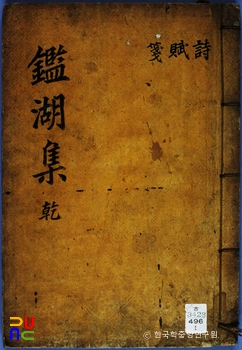 詩
賦
箋
鑑湖集 乾
496
ⓒ 한국학중앙연구원